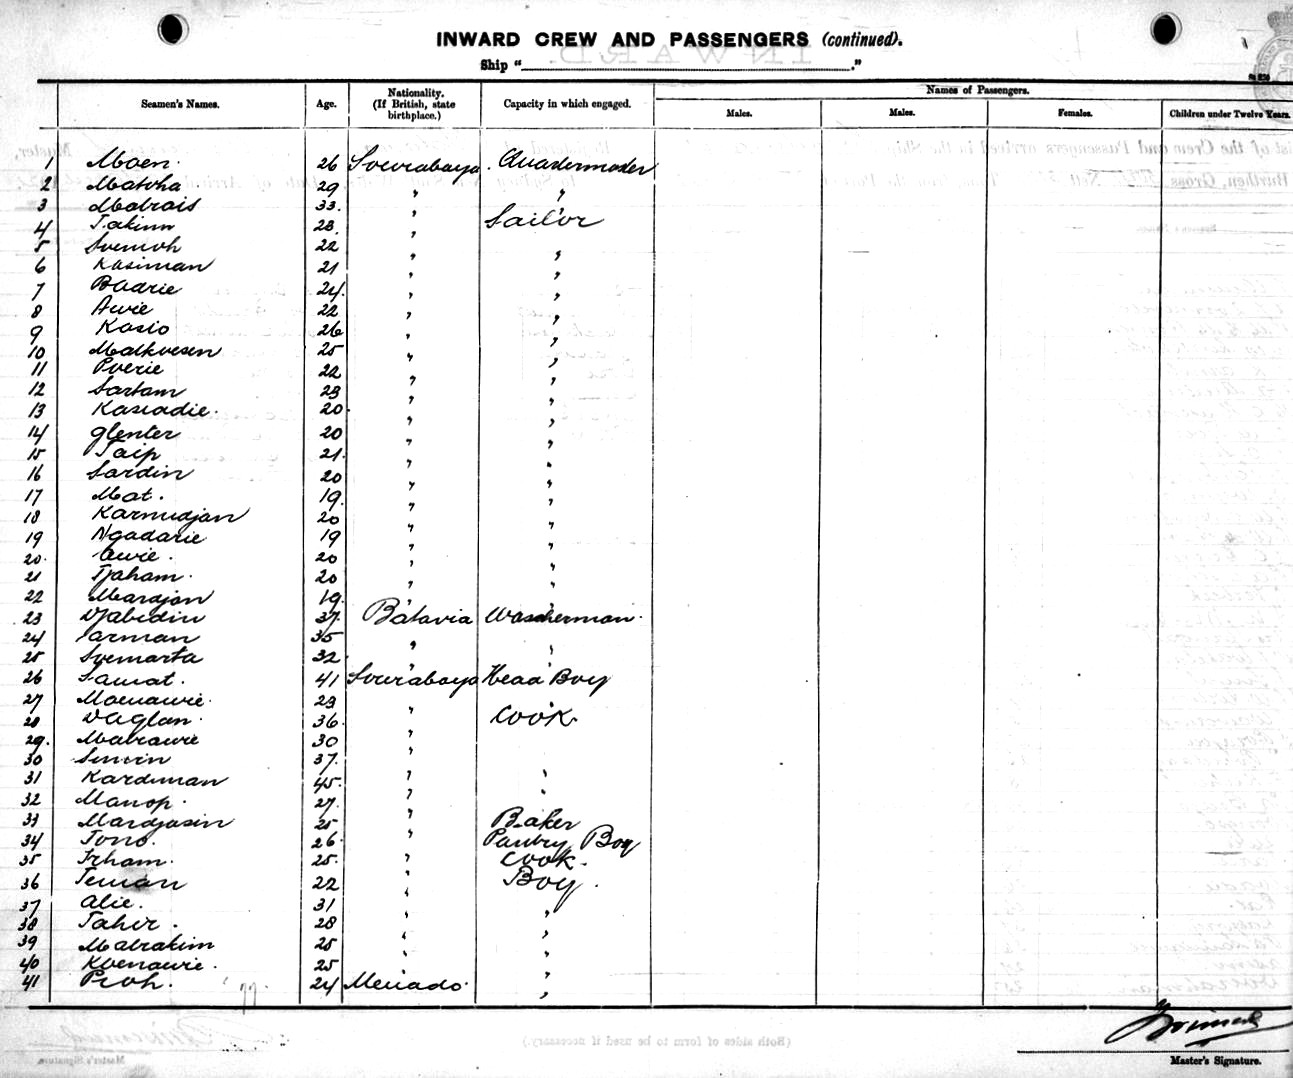 INWARD CREW AND PASSENGERS (continued).
Ship " ."
Seamen's Names. Age. Nationality. (If British, state birthplace.) Capacity in which engaged. Names of Passengers.
Males. Males. Females. Children under Twelve Years.
1 Moen. 26 Sourabaya. Quadermader
2 Matoha 29 " "
3 Matrais 33. " "
4 Takinn 23. " Sailor
5 Soemoh 22 " "
6 Kasiman 21 " "
7 Badrie 24. " "
8 Awie 22 " "
9 Kasio 26 " "
10 Malkoesen 25 " "
11 Poerie 22 " "
12 Sartam 23 " "
13 Kasiadie. 20. " "
14 Glenter 20 " "
15 Taip 21. " "
16 Sardin 20 " "
17 Mat. 19. " "
18 Karmidjan 20 " "
19 Ngadarie 19 " "
20. Awie. 20 " "
21 Tjaham. 20 " "
22 Mardjan 19. " "
23 Djabidin 37. Batavia Wascherman.
24 Sarman 35 " "
25 Soemarta 32. " "
26 Samat. 41 Sourabaya Head Boy
27 Moenawie. 23 "
28 Daglan. 36. " Cook
29. Matrawie 30 "
30 Simin 37. "
31 Kardiman 45. " "
32 Manop. 27. " "
33 Mardjasin 25 " Baker
34 Tono. 26. " Pantry Boy
35 Irham. 25. " Cook.
36 Teman 22 " Boy.
37 Alie. 31 " "
38 Tahir. 28 " "
39 Matrakim 25 " "
40 Koenawie. 25 " "
41 Proh. 24 Menado. "
Master's Signature.